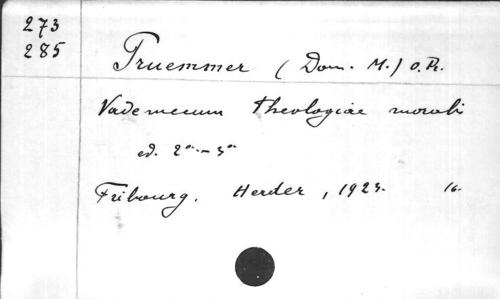 273
285
Pruemmer (Dom. M.) O. Pr.
Vademecum theologiae morali
ed. 2a - 3a
Fribourg. Herder, 1923. 16.